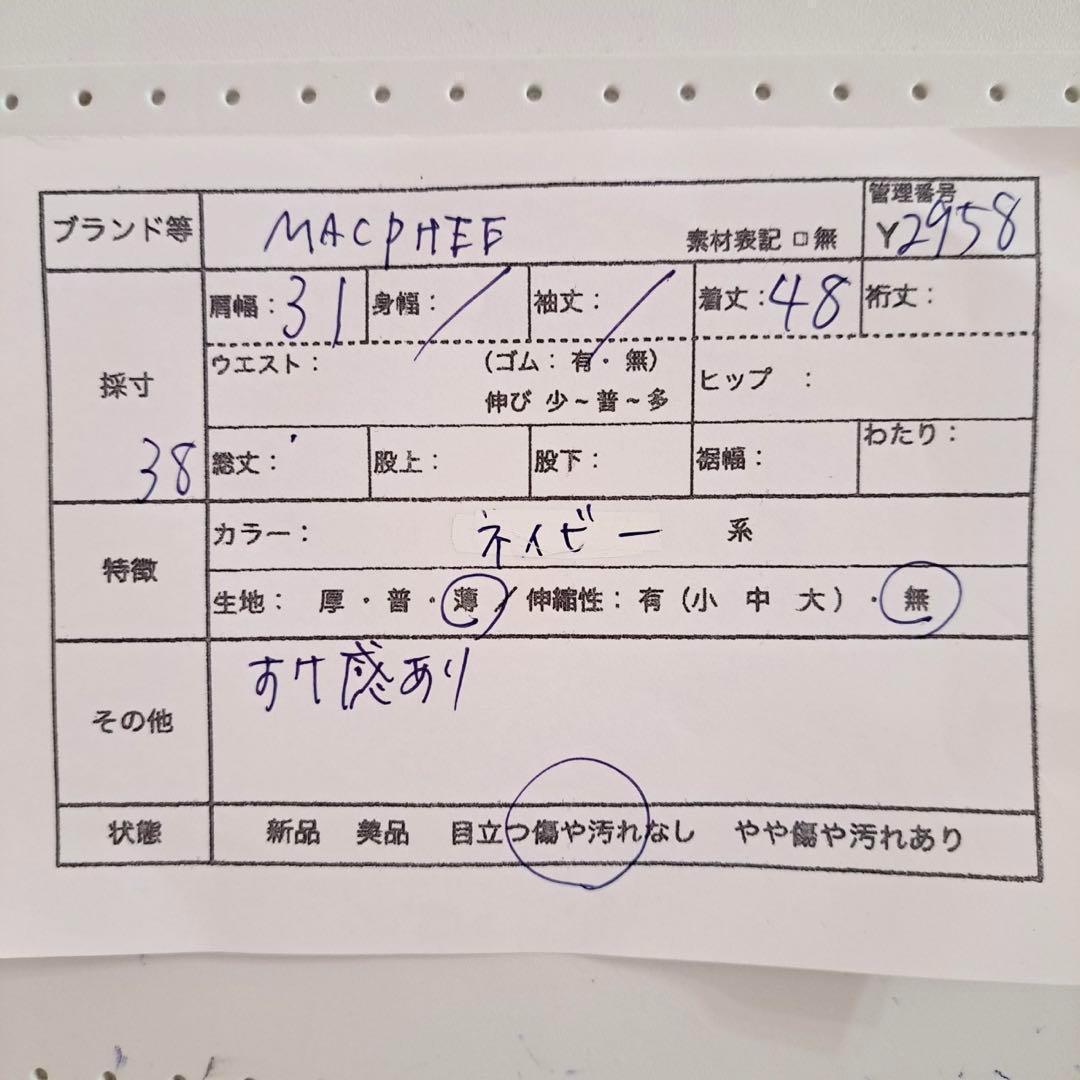 ブランド等 MACPHEE 素材表記 □ 無 管理番号 Y2958
採寸 38
肩幅：31 身幅：/ 袖丈：/ 着丈：48 裄丈：
ウエスト： （ゴム： 有・ 無） ヒップ ：
伸び 少～普～多
総丈： 股上： 股下： 裾幅： わたり：
特徴
カラー： ネイビー 系
生地： 厚・普・薄 / 伸縮性：有（小 中 大）・ 無
その他 すけ感あり
状態 新品 美品 目立つ傷や汚れなし やや傷や汚れあり